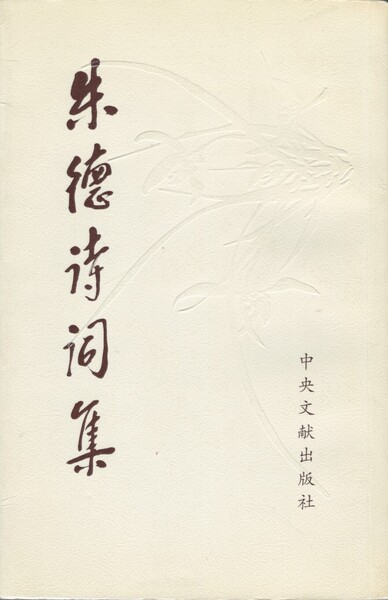 朱德诗词集
中央文献出版社